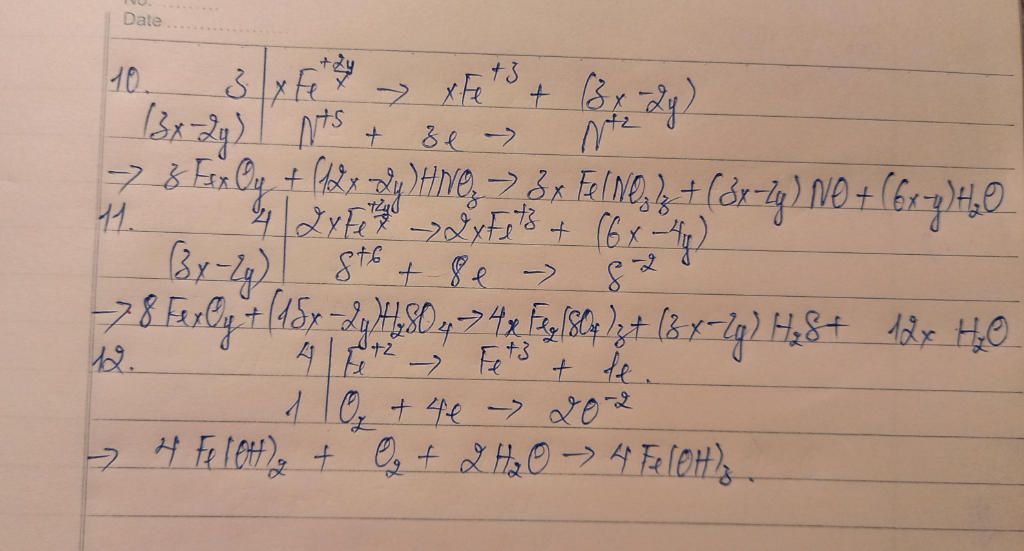 No. ..........
Date ....................
10. 3 | xFe^{+2y/x} → xFe^{+3} + (3x-2y)
(3x-2y) | N^{+5} + 3e → N^{+2}
→ 3FexOy + (12x-2y)HNO₃ → 3xFe(NO₃)₃ + (3x-2y)NO + (6x-y)H₂O
11. 4 | 2xFe^{+2y/x} → 2xFe^{+3} + (6x-4y)
(3x-2y) | S^{+6} + 8e → S^{-2}
→ 8FexOy + (15x-2y)H₂SO₄ → 4xFe₂(SO₄)₃ + (3x-2y)H₂S + 12x H₂O
12. 4 | Fe^{+2} → Fe^{+3} + 1e.
1 | O₂ + 4e → 2O^{-2}
→ 4Fe(OH)₂ + O₂ + 2H₂O → 4Fe(OH)₃.